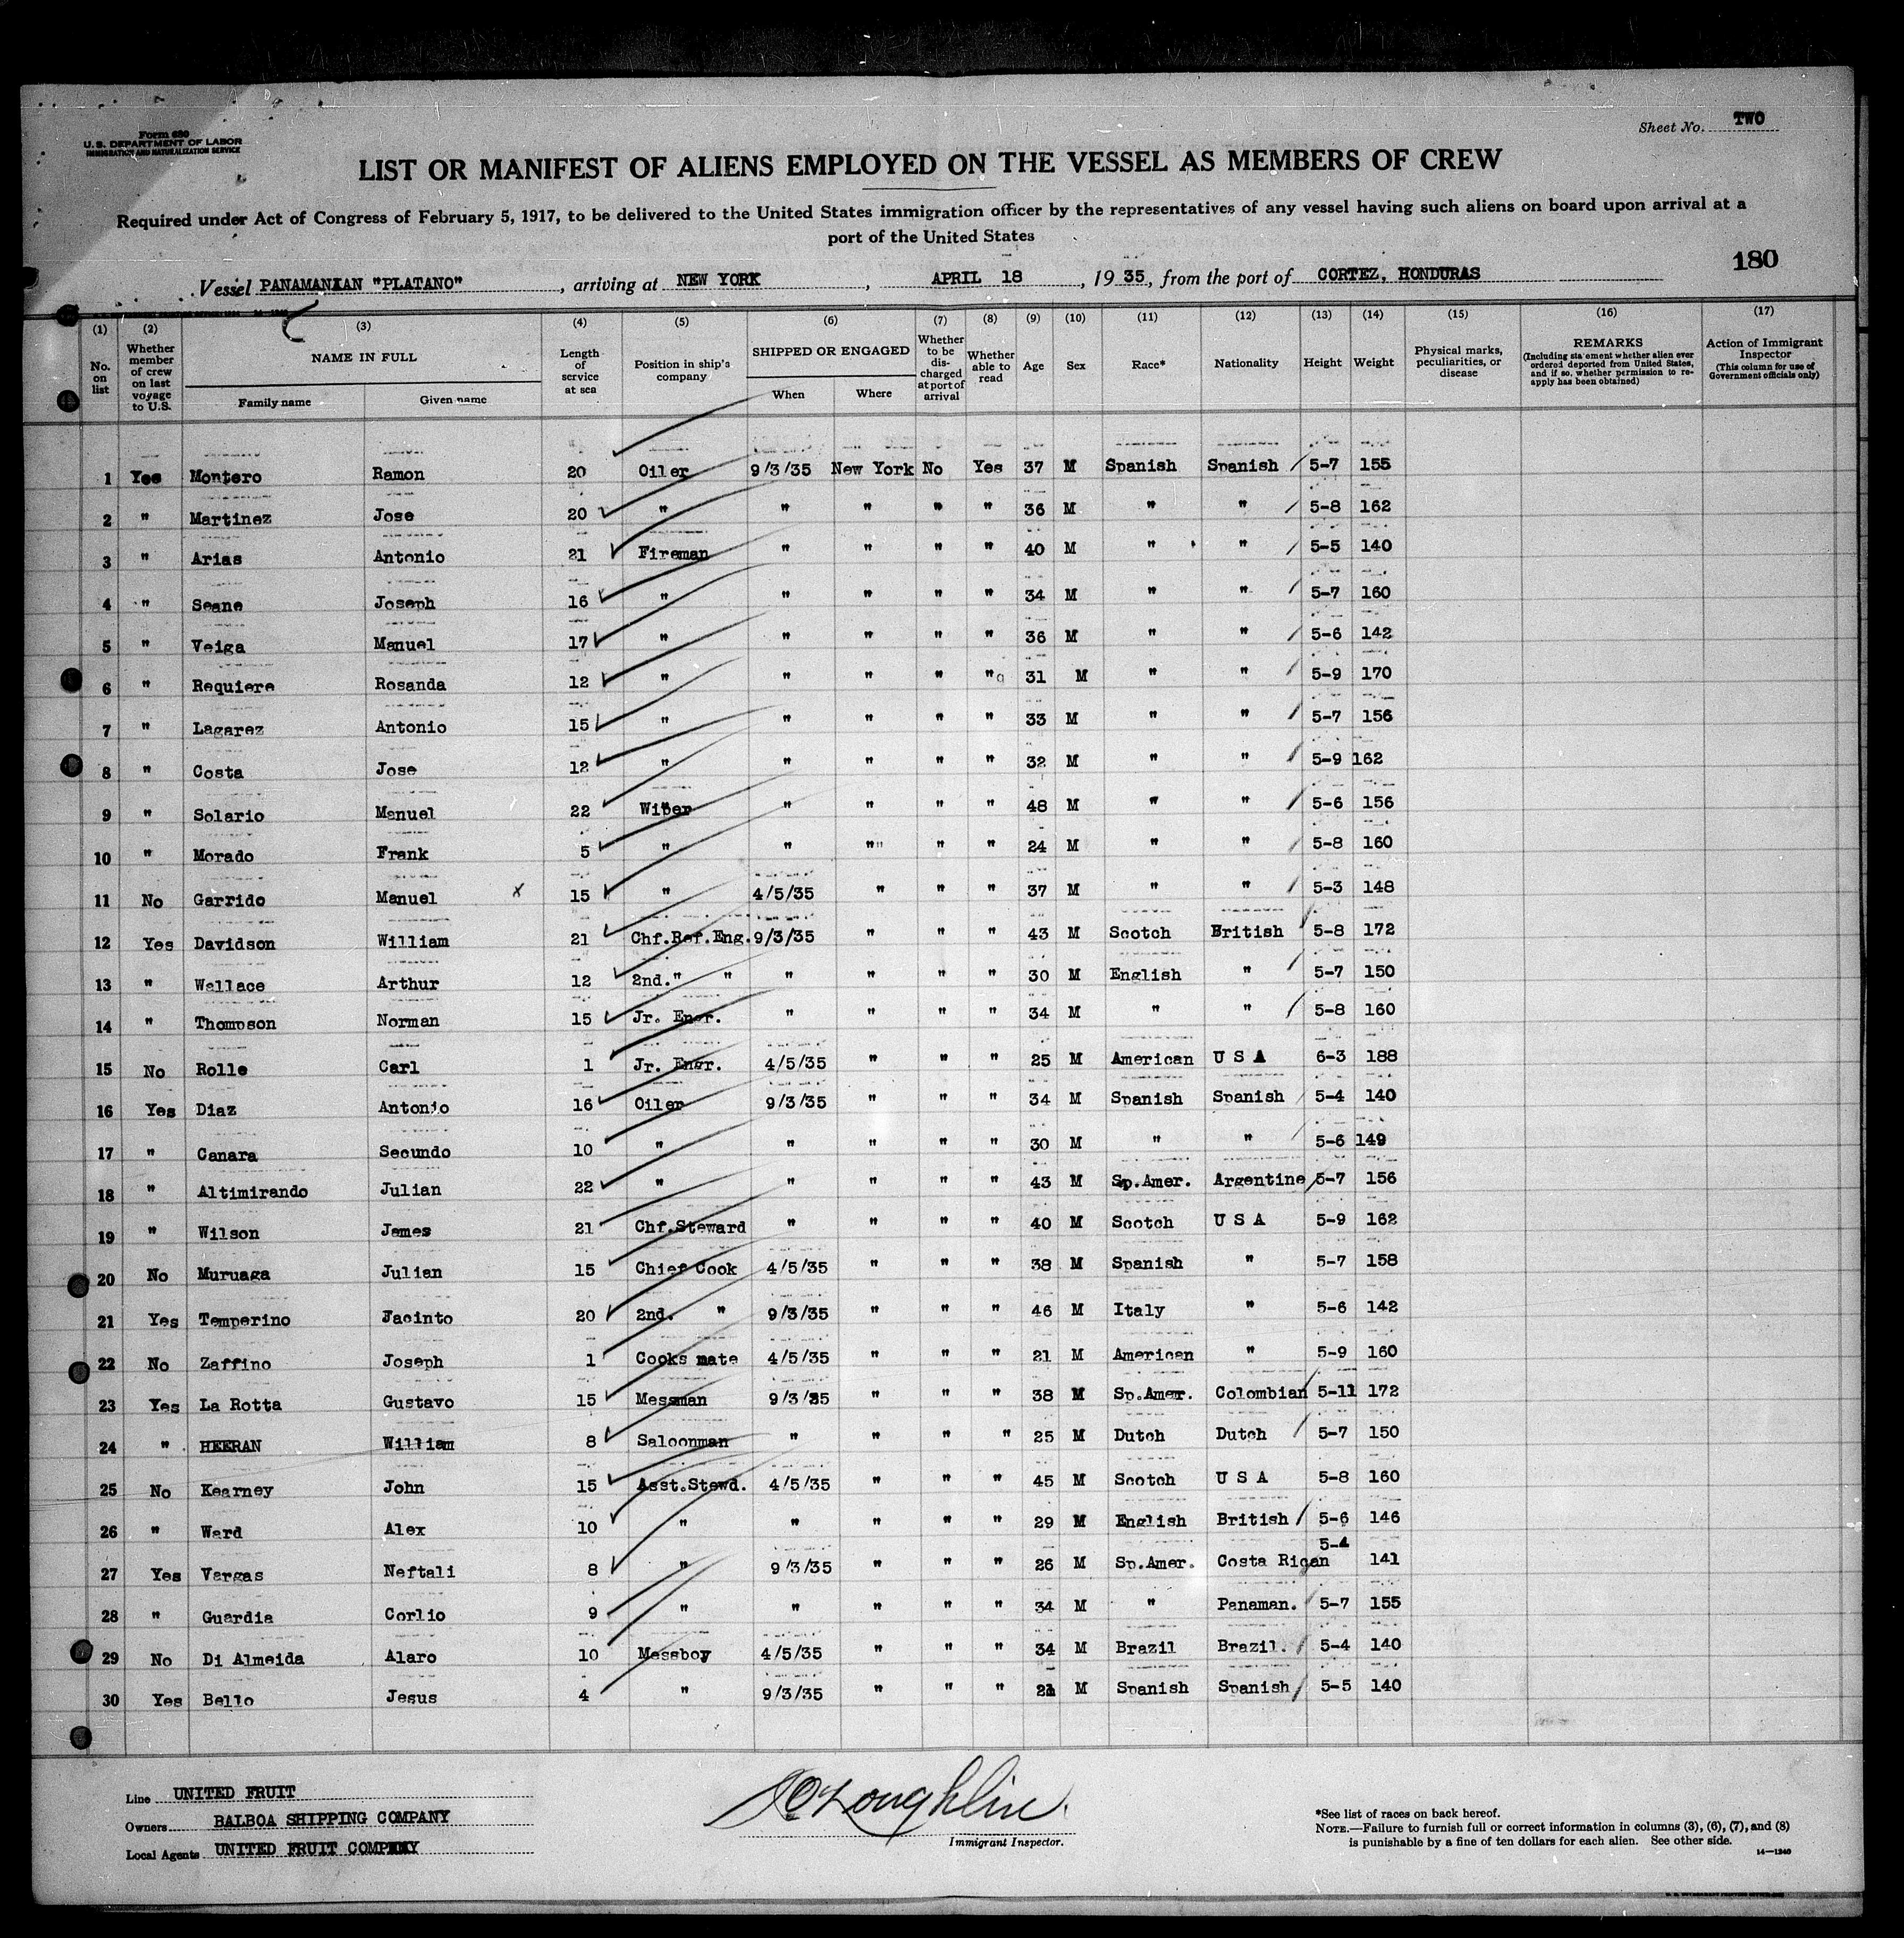 Form 680
U. S. DEPARTMENT OF LABOR
IMMIGRATION AND NATURALIZATION SERVICE
Sheet No. TWO
LIST OR MANIFEST OF ALIENS EMPLOYED ON THE VESSEL AS MEMBERS OF CREW
Required under Act of Congress of February 5, 1917, to be delivered to the United States immigration officer by the representatives of any vessel having such aliens on board upon arrival at a
port of the United States
180
Vessel PANAMANIAN "PLATANO", arriving at NEW YORK, APRIL 18, 1935, from the port of CORTEZ, HONDURAS
(1) (2) (3) (4) (5) (6) (7) (8) (9) (10) (11) (12) (13) (14) (15) (16) (17)
No. on list
Whether member of crew on last voyage to U.S.
NAME IN FULL
Family name Given name
Length of service at sea
Position in ship's company
SHIPPED OR ENGAGED
When Where
Whether to be discharged at port of arrival
Whether able to read
Age
Sex
Race*
Nationality
Height
Weight
Physical marks, peculiarities, or disease
REMARKS
(Including statement whether alien ever ordered deported from United States, and if so, whether permission to reapply has been obtained)
Action of Immigrant Inspector
(This column for use of Government officials only)
1 Yes Montero Ramon 20 Oiler 9/3/35 New York No Yes 37 M Spanish Spanish 5-7 155
2 " Martinez Jose 20 " " " " " 36 M " " 5-8 162
3 " Arias Antonio 21 Fireman " " " " 40 M " " 5-5 140
4 " Seane Joseph 16 " " " " " 34 M " " 5-7 160
5 " Veiga Manuel 17 " " " " " 36 M " " 5-6 142
6 " Requiere Rosanda 12 " " " " " 31 M " " 5-9 170
7 " Lagarez Antonio 15 " " " " " 33 M " " 5-7 156
8 " Costa Jose 12 " " " " " 32 M " " 5-9 162
9 " Solario Manuel 22 Wiper " " " " 48 M " " 5-6 156
10 " Morado Frank 5 " " " " " 24 M " " 5-8 160
11 No Garrido Manuel x 15 " 4/5/35 " " " 37 M " " 5-3 148
12 Yes Davidson William 21 Chf.Ref.Eng. 9/3/35 " " " 43 M Scotch British 5-8 172
13 " Wallace Arthur 12 2nd. " " " " " " 30 M English " 5-7 150
14 " Thompson Norman 15 Jr. Engr. " " " " 34 M " " 5-8 160
15 No Rolle Carl 1 Jr. Engr. 4/5/35 " " " 25 M American U S A 6-3 188
16 Yes Diaz Antonio 16 Oiler 9/3/35 " " " 34 M Spanish Spanish 5-4 140
17 " Canara Secundo 10 " " " " " 30 M " " 5-6 149
18 " Altimirando Julian 22 " " " " " 43 M Sp.Amer. Argentine 5-7 156
19 " Wilson James 21 Chf.Steward " " " " 40 M Scotch U S A 5-9 162
20 No Muruaga Julian 15 Chief Cook 4/5/35 " " " 38 M Spanish " 5-7 158
21 Yes Temperino Jacinto 20 2nd. " 9/3/35 " " " 46 M Italy " 5-6 142
22 No Zaffino Joseph 1 Cooks mate 4/5/35 " " " 21 M American " 5-9 160
23 Yes La Rotta Gustavo 15 Messman 9/3/35 " " " 38 M Sp.Amer. Colombian 5-11 172
24 " HEERAN William 8 Saloonman " " " " 25 M Dutch Dutch 5-7 150
25 No Kearney John 15 Asst.Stewd. 4/5/35 " " " 45 M Scotch U S A 5-8 160
26 " Ward Alex 10 " " " " " 29 M English British 5-6 146
27 Yes Vargas Neftali 8 " 9/3/35 " " " 26 M Sp.Amer. Costa Rican 5-4 141
28 " Guardia Corlio 9 " " " " " 34 M " Panaman. 5-7 155
29 No Di Almeida Alaro 10 Messboy 4/5/35 " " " 34 M Brazil Brazil. 5-4 140
30 Yes Bello Jesus 4 " 9/3/35 " " " M Spanish Spanish 5-5 140
Line UNITED FRUIT
Owners BALBOA SHIPPING COMPANY
Local Agents UNITED FRUIT COMPANY
O'Loughlin
Immigrant Inspector.
*See list of races on back hereof.
NOTE.—Failure to furnish full or correct information in columns (3), (6), (7), and (8)
is punishable by a fine of ten dollars for each alien. See other side.
14—1240